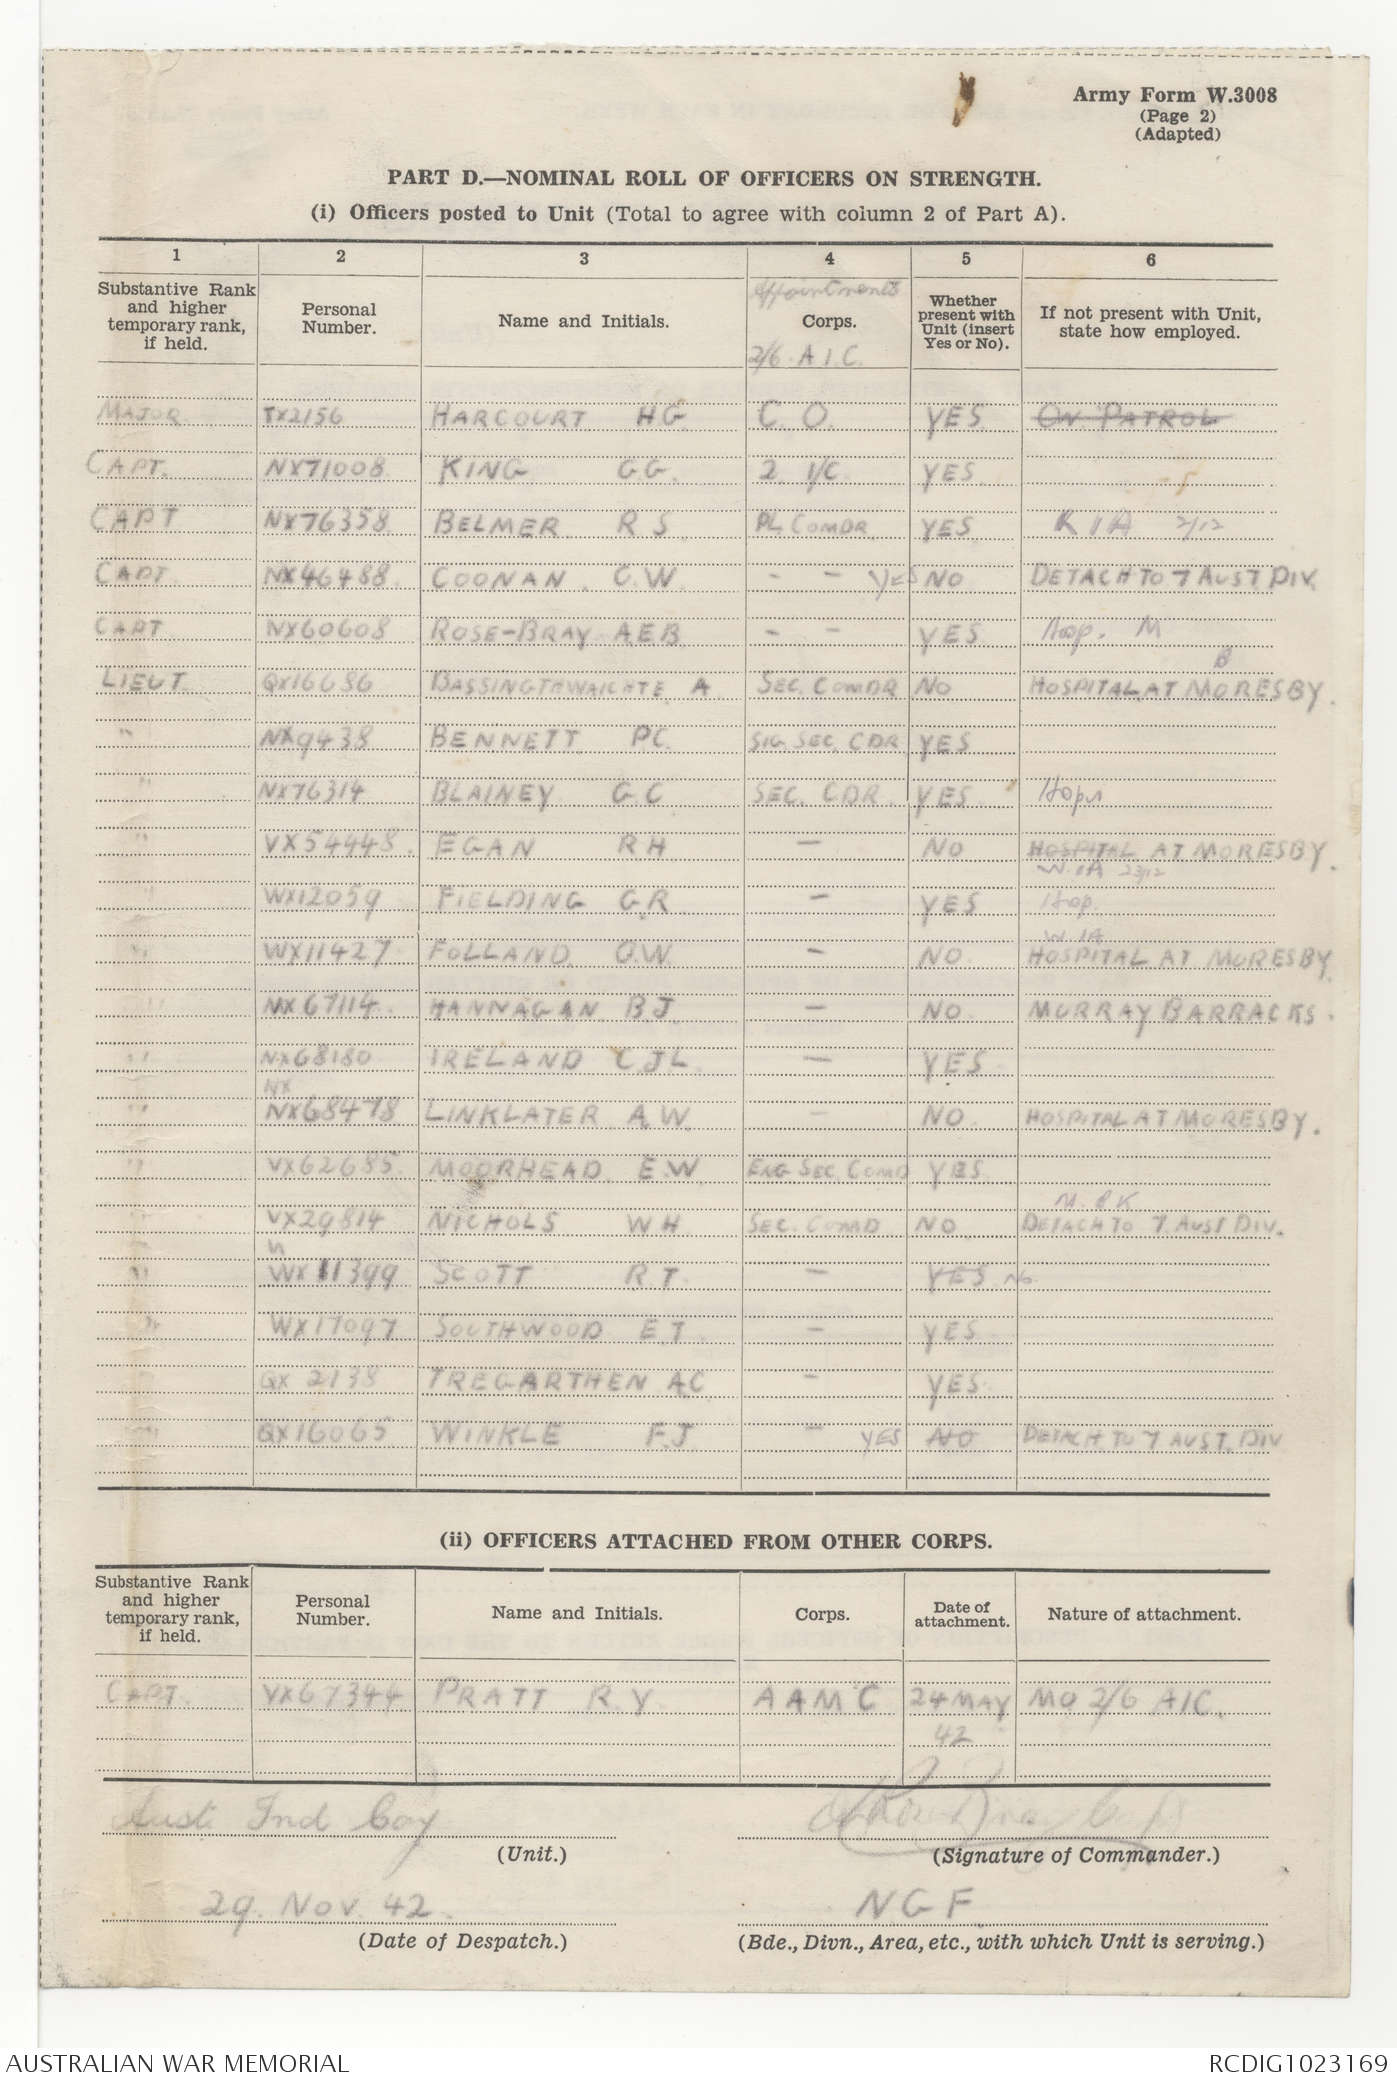 Army Form W.3008
(Page 2)
(Adapted)
PART D.—NOMINAL ROLL OF OFFICERS ON STRENGTH.
(i) Officers posted to Unit (Total to agree with column 2 of Part A).
1 2 3 4 5 6
Substantive Rank and higher temporary rank, if held. Personal Number. Name and Initials. Appointments Corps. 2/6 A.I.C. Whether present with Unit (insert Yes or No). If not present with Unit, state how employed.
MAJOR TX2156 HARCOURT HG C.O. YES ON PATROL
CAPT. NX71008 KING G.G. 2 I/C. YES
CAPT NX76358 BELMER R S PL COMDR YES KIA 2/12
CAPT NX46488 COONAN C.W. - - YES NO DETACH TO 7 AUST DIV.
CAPT NX60608 ROSE-BRAY A.E.B - - YES Hosp. M
B
LIEUT. QX16686 BASSINGTHWAIGHTE A SEC. COMDR NO HOSPITAL AT MORESBY.
" NX9438 BENNETT P.C. SIG SEC. CDR YES
" NX76314 BLAINEY G C SEC. CDR YES
" VX54448. EGAN R H — NO HOSPITAL AT MORESBY.
W.IA 23/12
" WX12059 FIELDING G.R — YES Hosp.
W.IA
" WX11427 FOLLAND O.W. — NO. HOSPITAL AT MORESBY.
" NX67114 HANNAGAN B.J. — NO. MURRAY BARRACKS.
" NX68180 IRELAND C.J.L. — YES
NX
" NX68478 LINKLATER A.W. — NO. HOSPITAL AT MORESBY.
" VX62685. MOORHEAD E.W ENG SEC. COMD YES.
" VX29814 NICHOLS W H SEC. COMD NO. DETACH TO 7 AUST DIV.
" WX11399 SCOTT R.T. — YES No
" WX17097 SOUTHWOOD E T. — YES
" QX 2138 TREGARTHEN A.C — YES
" QX16065 WINKLE F.J — YES NO DETACH TO 7 AUST. DIV
(ii) OFFICERS ATTACHED FROM OTHER CORPS.
Substantive Rank and higher temporary rank, if held. Personal Number. Name and Initials. Corps. Date of attachment. Nature of attachment.
CAPT. VX67344 PRATT R.Y. AAMC 24 MAY 42 MO 2/6 AIC.
Aust Ind Coy
(Unit.) (Signature of Commander.)
29. NOV. 42. NGF
(Date of Despatch.) (Bde., Divn., Area, etc., with which Unit is serving.)
AUSTRALIAN WAR MEMORIAL RCDIG1023169